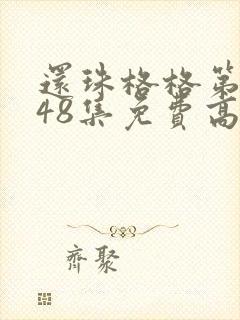 還珠格格第
48集免費高
齊聚